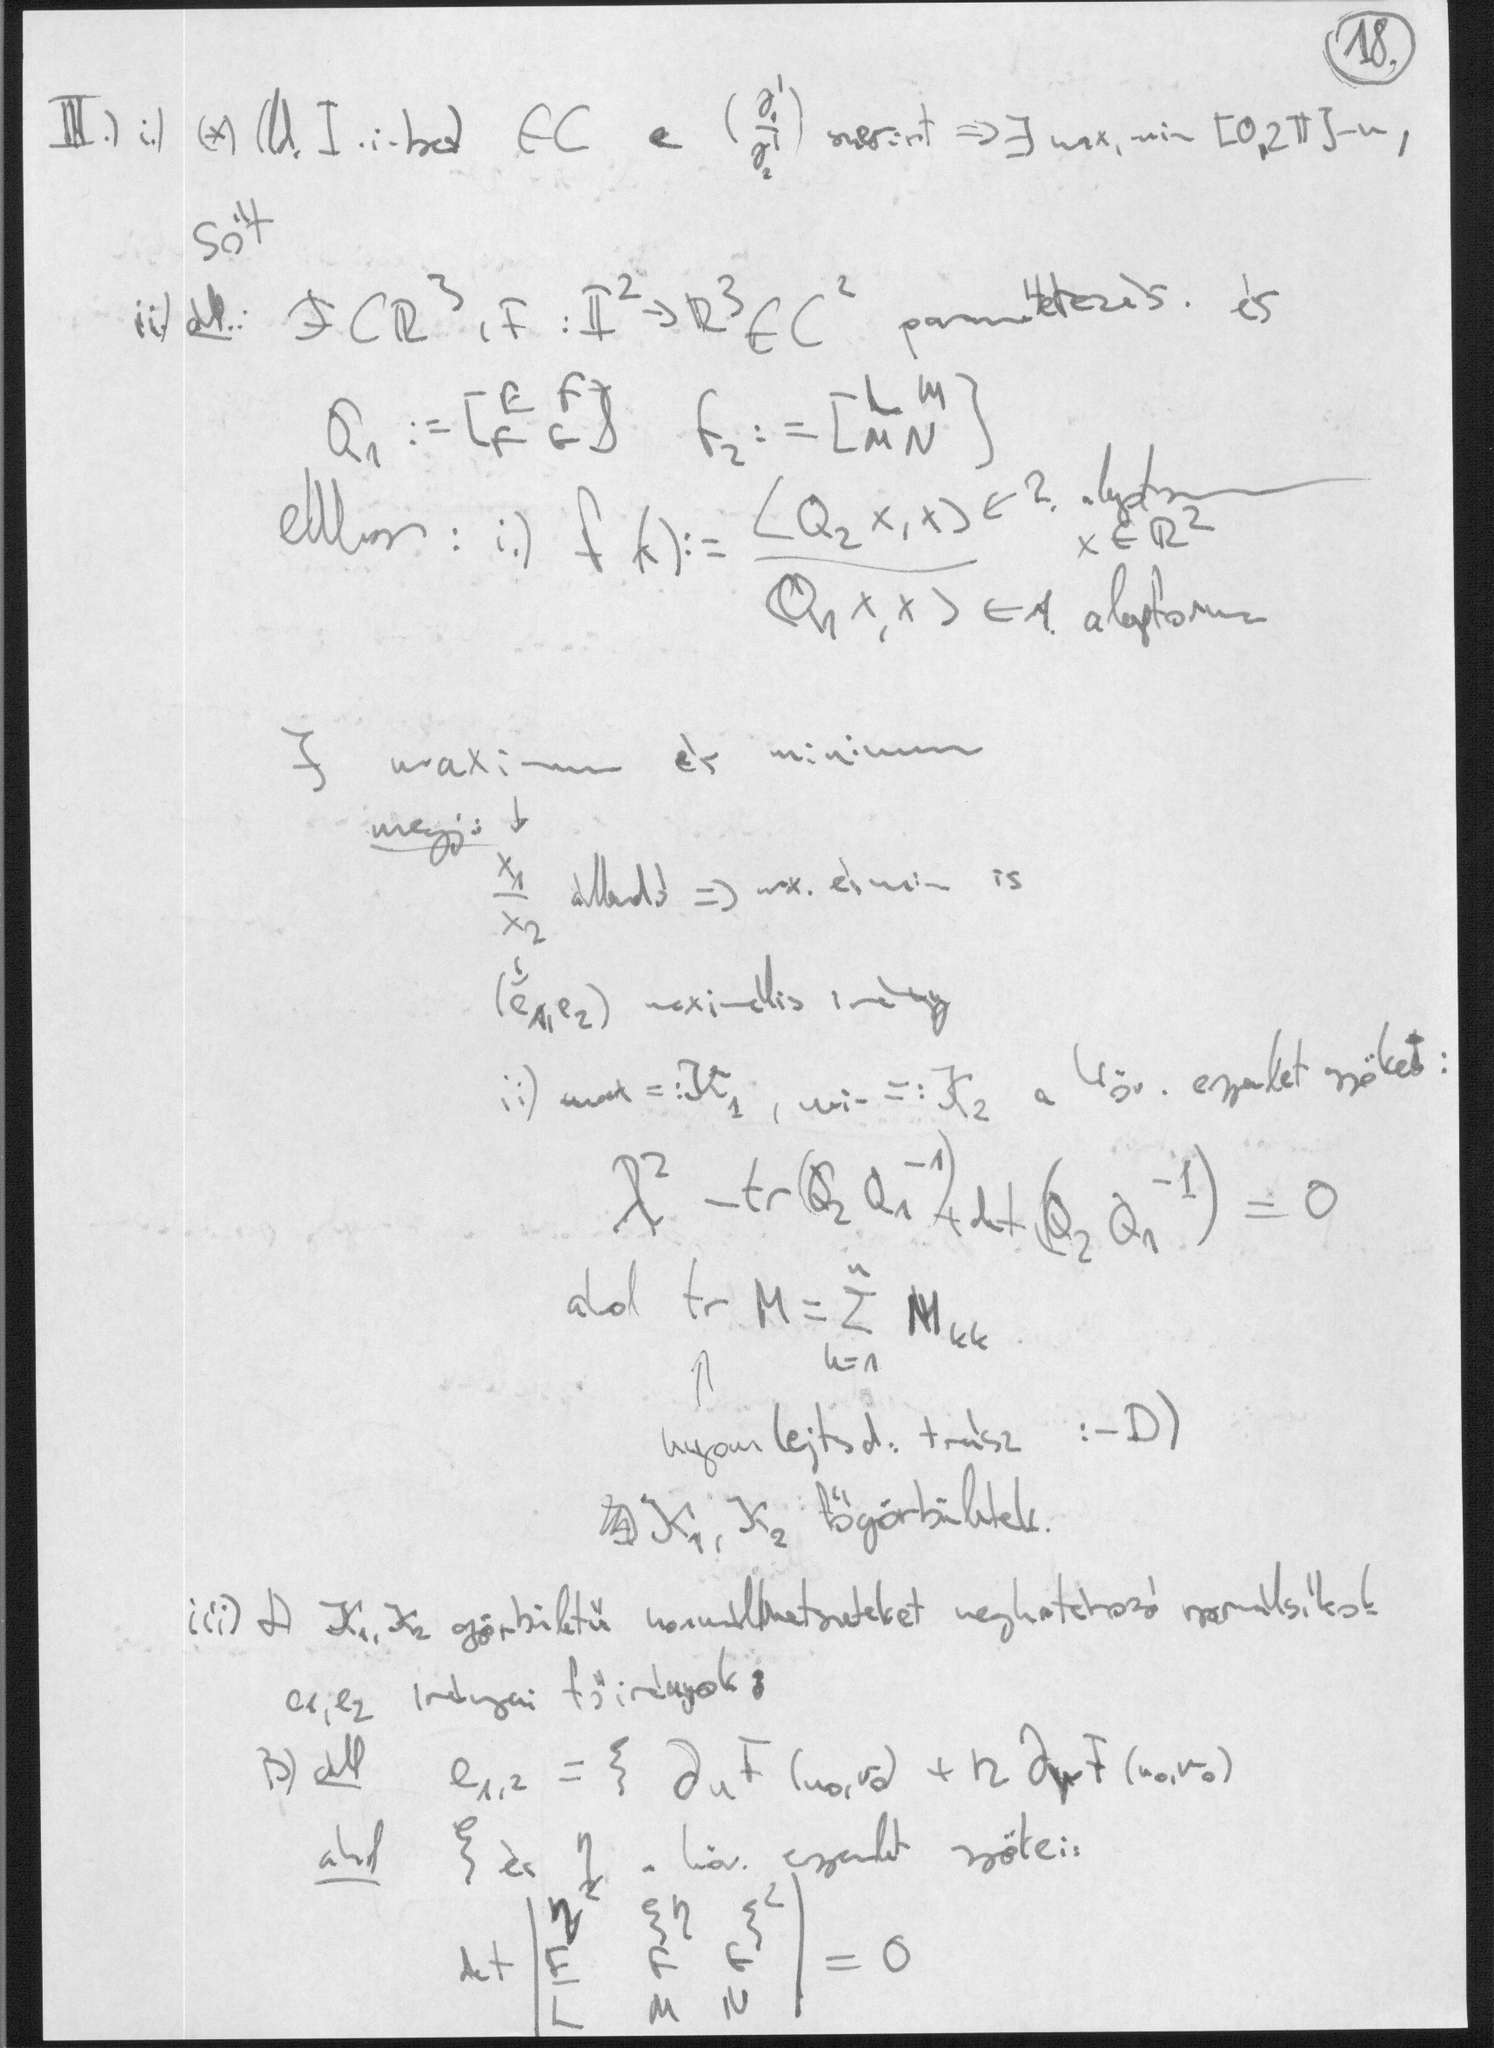 18.
III.) i.) (*) (ld. I. i.-ben) ∈ C a (γ₁'/γ₂') szerint ⇒ ∃ max, min [0,2π]-n,
sőt
ii) áll.: F ⊂ ℝ³, F : I² → ℝ³ ∈ C² paraméterezés. és
Q₁ := [E F; F G] Q₂ := [L M; M N]
ekkor : i.) f(x) := ⟨Q₂ x, x⟩ ← 2. alapforma
x ∈ ℝ²
⟨Q₁ x, x⟩ ← 1. alapforma
∃ maximum és minimum
megj: ↓
x₁/x₂ állandó ⇒ max. és min is
(e₁, e₂) maximális irány
ii) max =: K₁, min =: K₂ a köv. egyenlet gyökei :
λ² - tr(Q₂ Q₁⁻¹) + det(Q₂ Q₁⁻¹) = 0
ahol tr M = Σ_{k=1}^{n} M_{kk}
↑
nyom lejtsd: trász :-D)
K₁, K₂ főgörbületek.
iii) A K₁, K₂ görbületű normálmetszeteket meghatározó normálsíkok
e₁, e₂ irányai főirányok:
B) áll e₁,₂ = ξ ∂ᵤF (u₀,v₀) + η ∂ᵥF (u₀,v₀)
ahol ξ és η a köv. egyenlet gyökei:
det | η² ξη ξ² |
E F G = 0
L M N